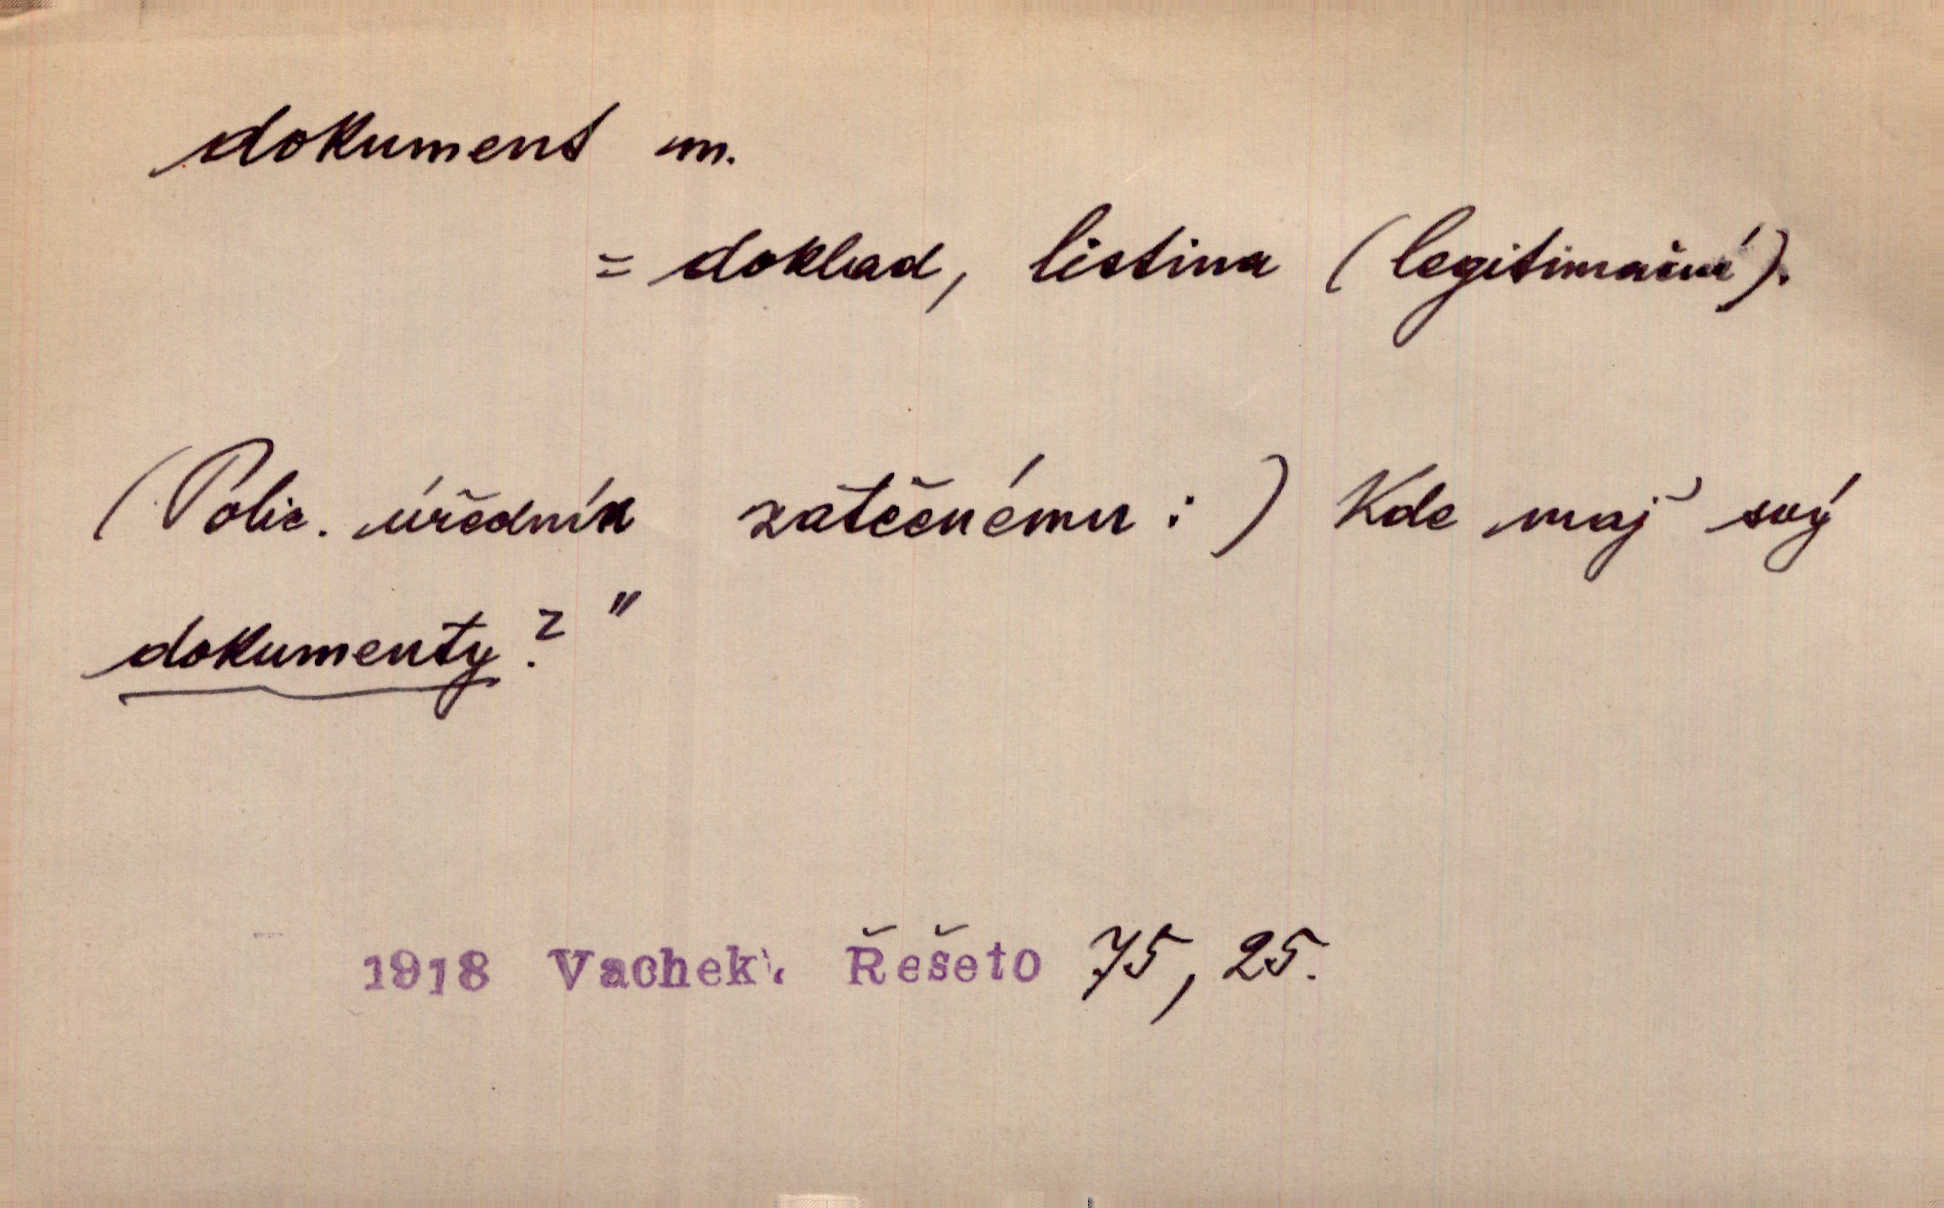 dokument m.
= doklad, listina (legitimační).
(Polic. úředník zatčenému:) Kde maj svý
dokumenty?"
1918 Vachek. Řešeto 75, 25.